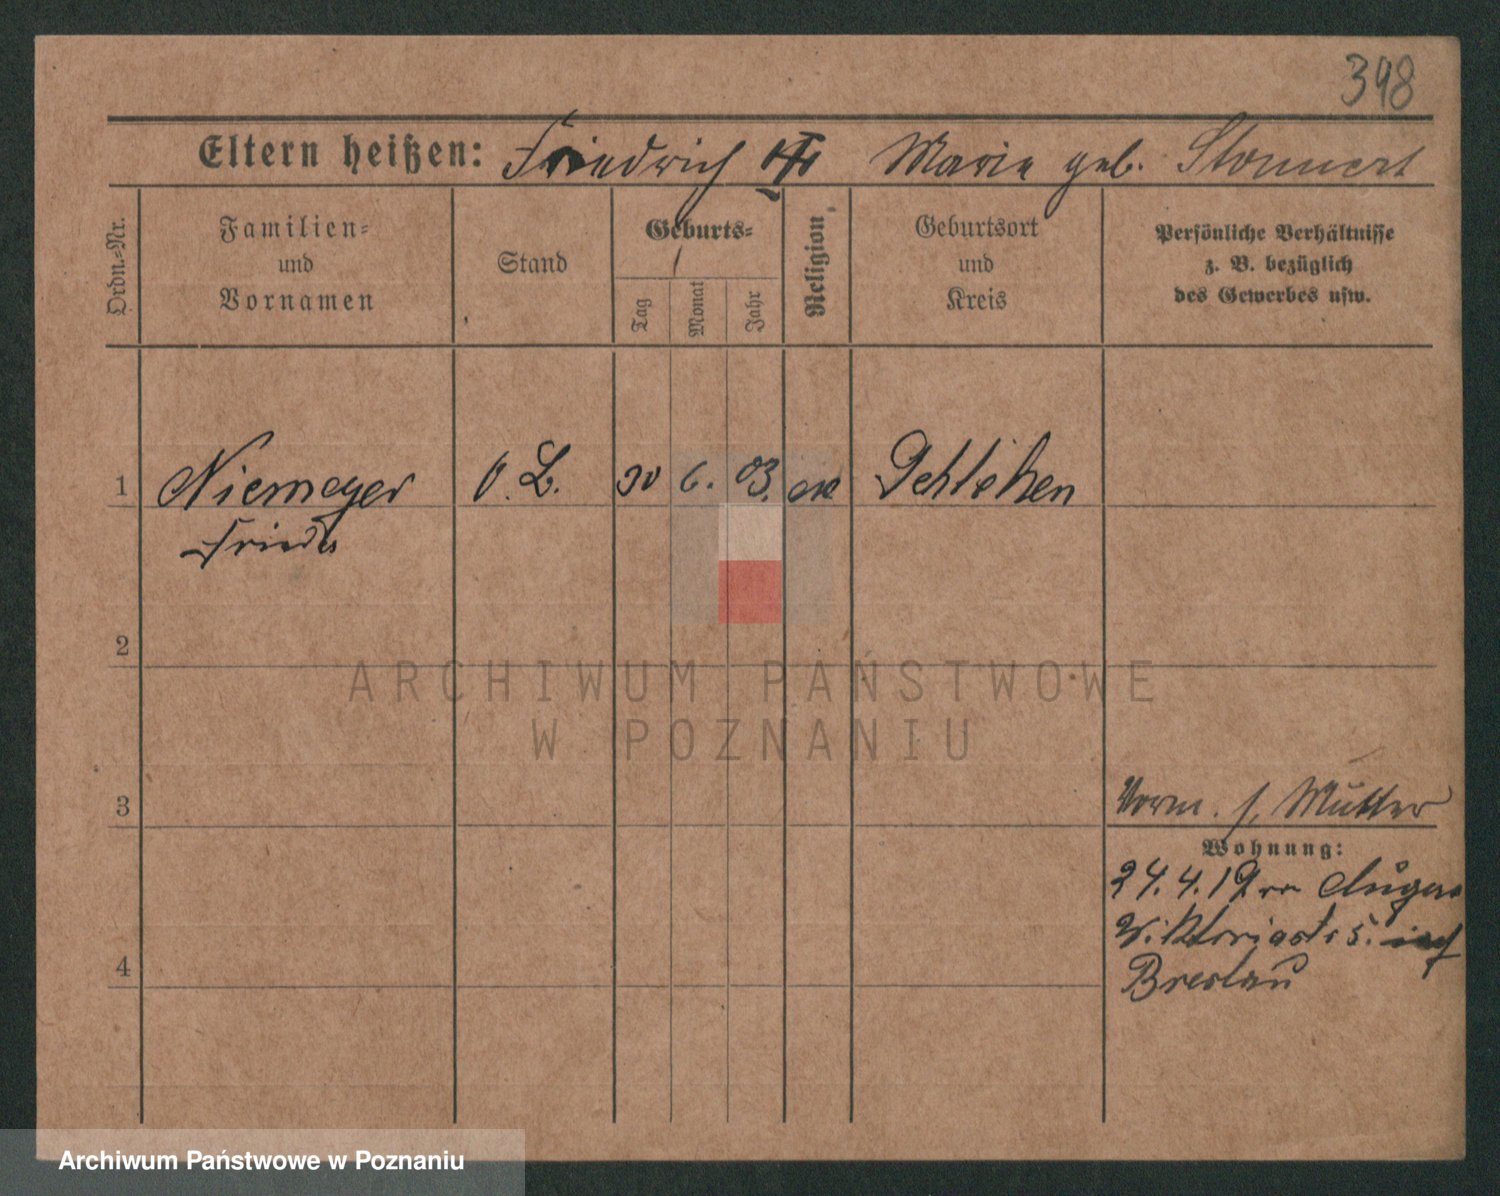 398
Eltern heißen: Friedrich Marie geb.
Ordn.-Nr.
Familien-
und
Vornamen
Stand
Geburts-
Tag
Monat
Jahr
Religion
Geburtsort
und
Kreis
Persönliche Verhältnisse
z. B. bezüglich
des Gewerbes usw.
1 Niemeyer 30 6. 03.
Frieda
2
3
4
Vorm. s. Mutter
Wohnung:
24.4.19
5.
Breslau
ARCHIWUM PAŃSTWOWE
W POZNANIU
Archiwum Państwowe w Poznaniu